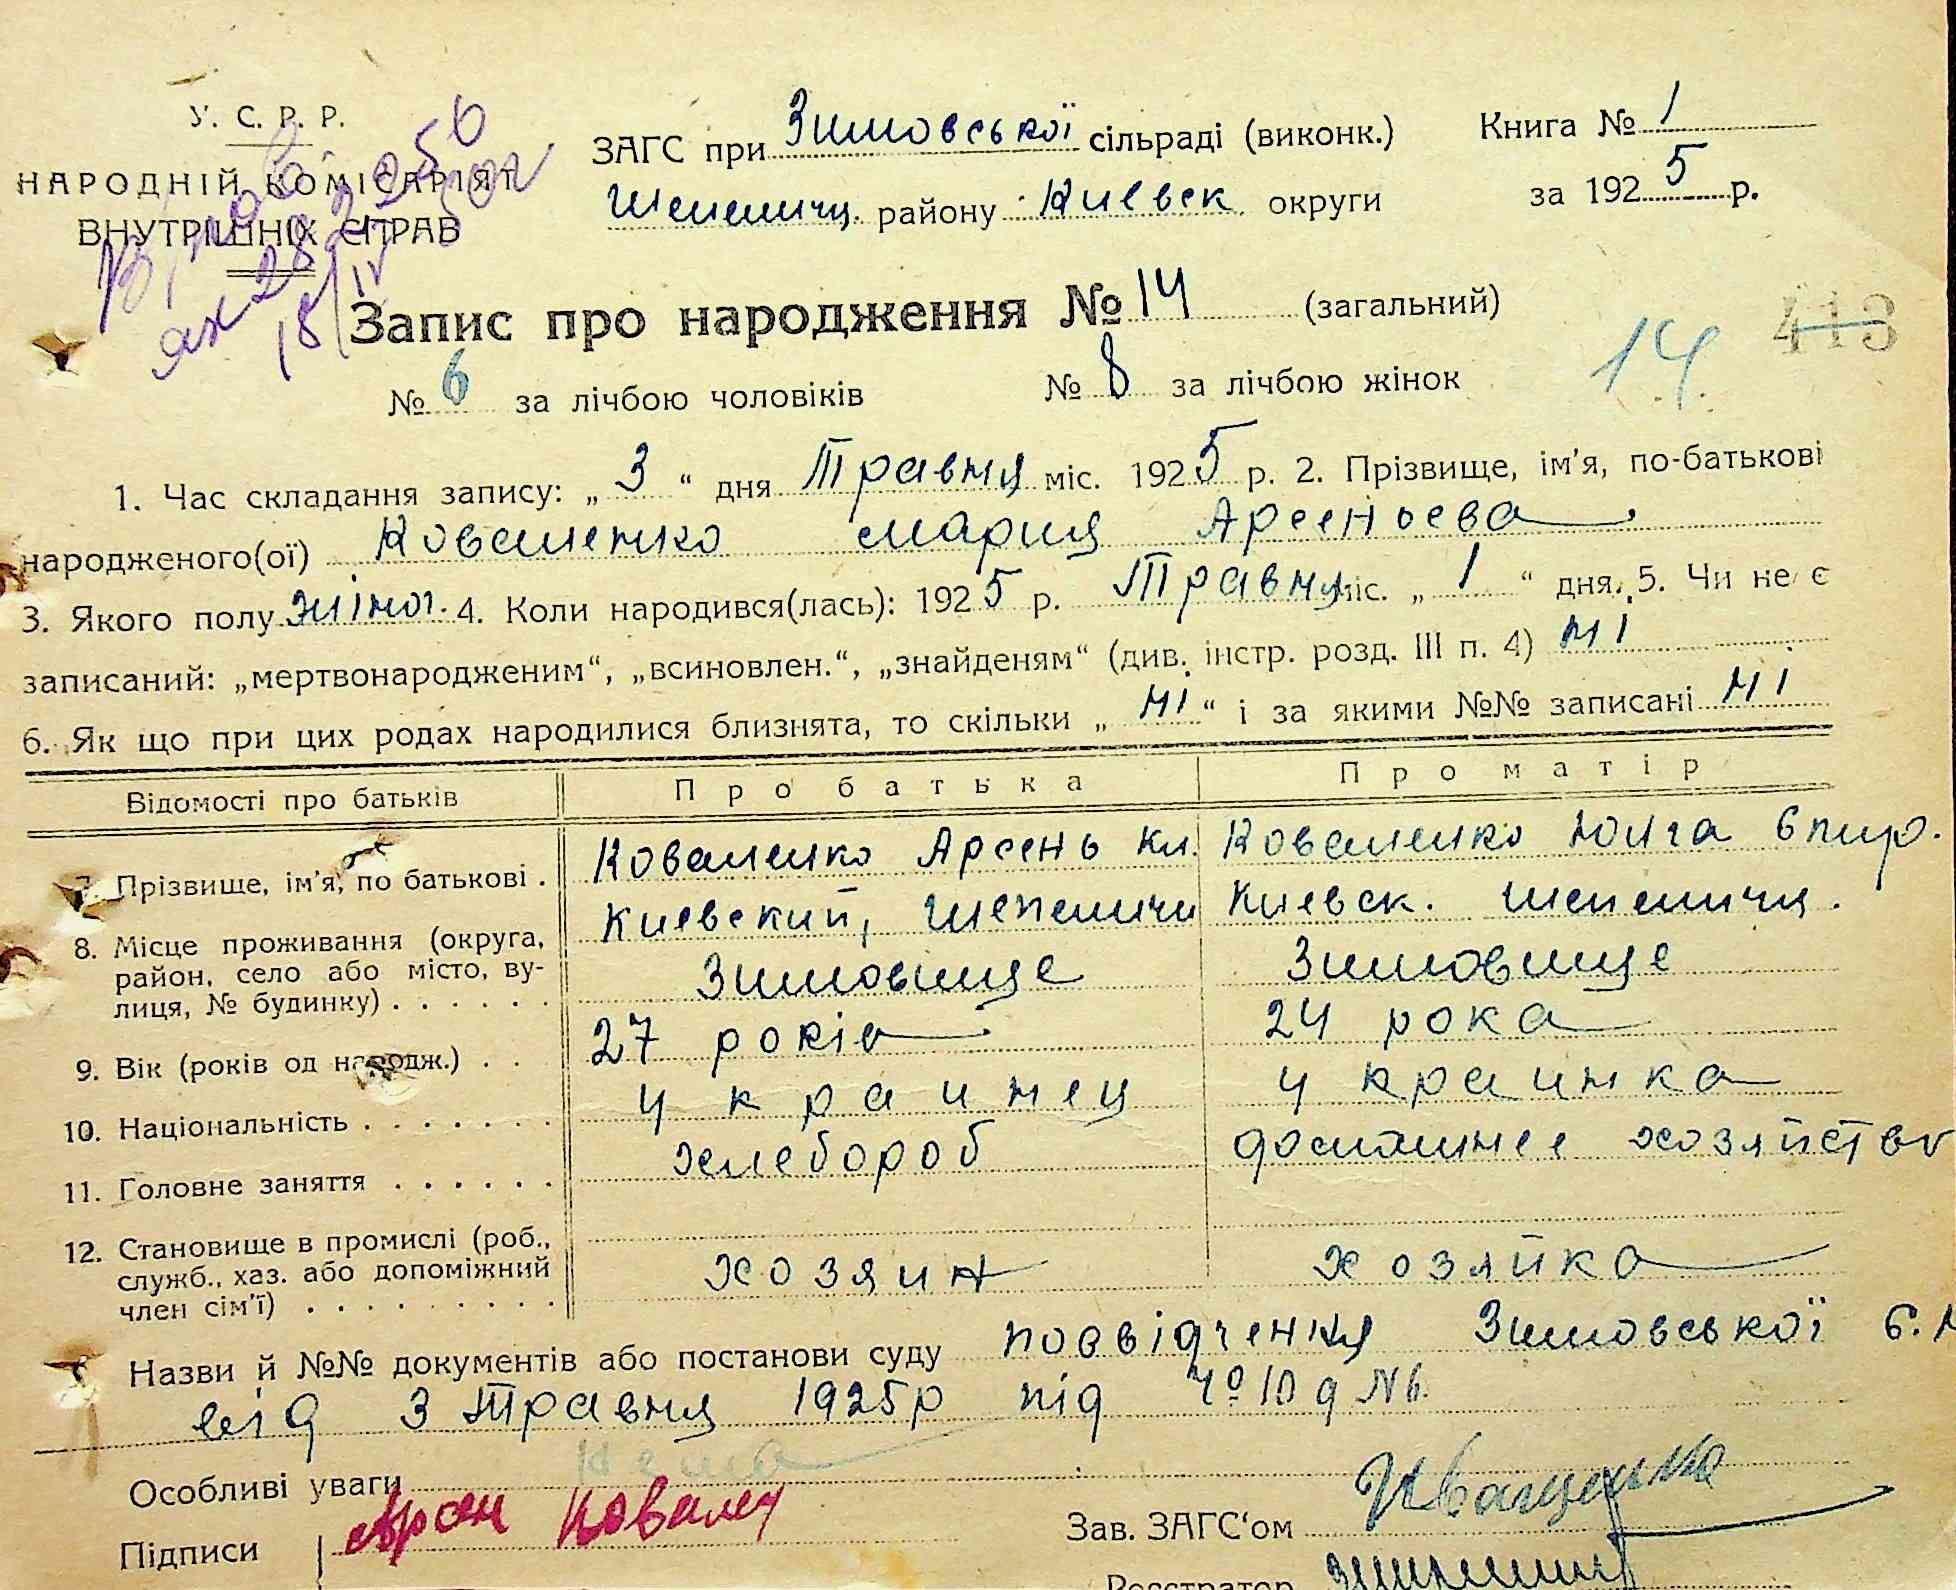 У. С. Р. Р.
НАРОДНІЙ КОМІСАРІЯТ
ВНУТРІШНІХ СПРАВ
ЗАГС при Зимовської сільраді (виконк.)
Шепелич. району Киевск округи
Книга № 1
за 1925 р.
18/IV
Запис про народження № 14 (загальний)
413
№ 6 за лічбою чоловіків № 8 за лічбою жінок
14
1. Час складання запису: „ 3 “ дня Травня міс. 1925 р. 2. Прізвище, ім'я, по-батькові
народженого(ої) Коваленко Мария Арсеньева
3. Якого полу жіноч. 4. Коли народився(лась): 1925 р. Травня міс. „ 1 “ дня. 5. Чи не є
записаний: „мертвонародженим“, „всиновлен.“, „знайденям“ (див. інстр. розд. III п. 4) Ні
6. Як що при цих родах народилися близнята, то скільки „ Ні “ і за якими №№ записані Ні
Відомості про батьків Про батька Про матір
7. Прізвище, ім'я, по батькові . Коваленко Арсень Кл. Коваленко Юлга Спир.
8. Місце проживання (округа, район, село або місто, вулиця, № будинку) . . . . . . Киевский, Шепеличи Зимовище Киевск. Шепелича. Зимовище
9. Вік (років од народж.) . . 27 років 24 рока
10. Національність . . . . . . . Украинец Украинка
11. Головне заняття . . . . . . Хлебороб домашнее хозяйство
12. Становище в промислі (роб., служб., хаз. або допоміжний член сім'ї) . . . . . . . . . хозяин хозяйка
Назви й №№ документів або постанови суду посвідчення Зимовської С.
від 3 Травня 1925р під
Особливі уваги Нема
Підписи Арсен Ковален
Зав. ЗАГС'ом Иващенко
Реєстратор